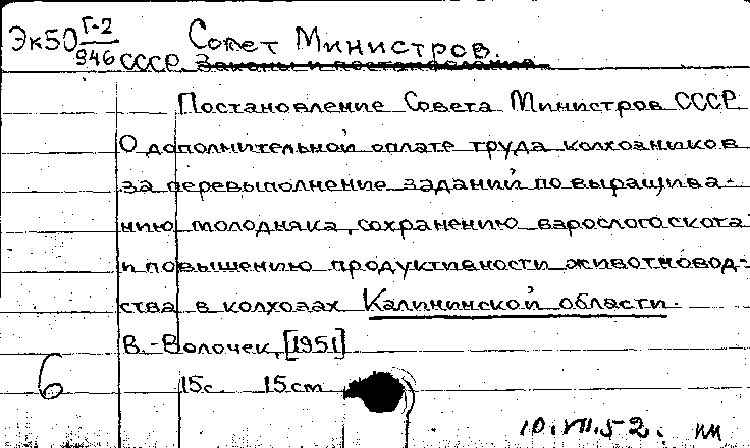 Эк50 Г-2 Совет Министров.
946 СССР. Законы и постановления.
Постановление Совета Министров СССР
О дополнительной оплате труда колхозников
за перевыполнение заданий по выращива-
нию молодняка, сохранению взрослого скота
и повышению продуктивности животновод-
ства в колхозах Калининской области.
В.-Волочек, [1951]
6 15с. 15 см
10.VII.52. ИМ